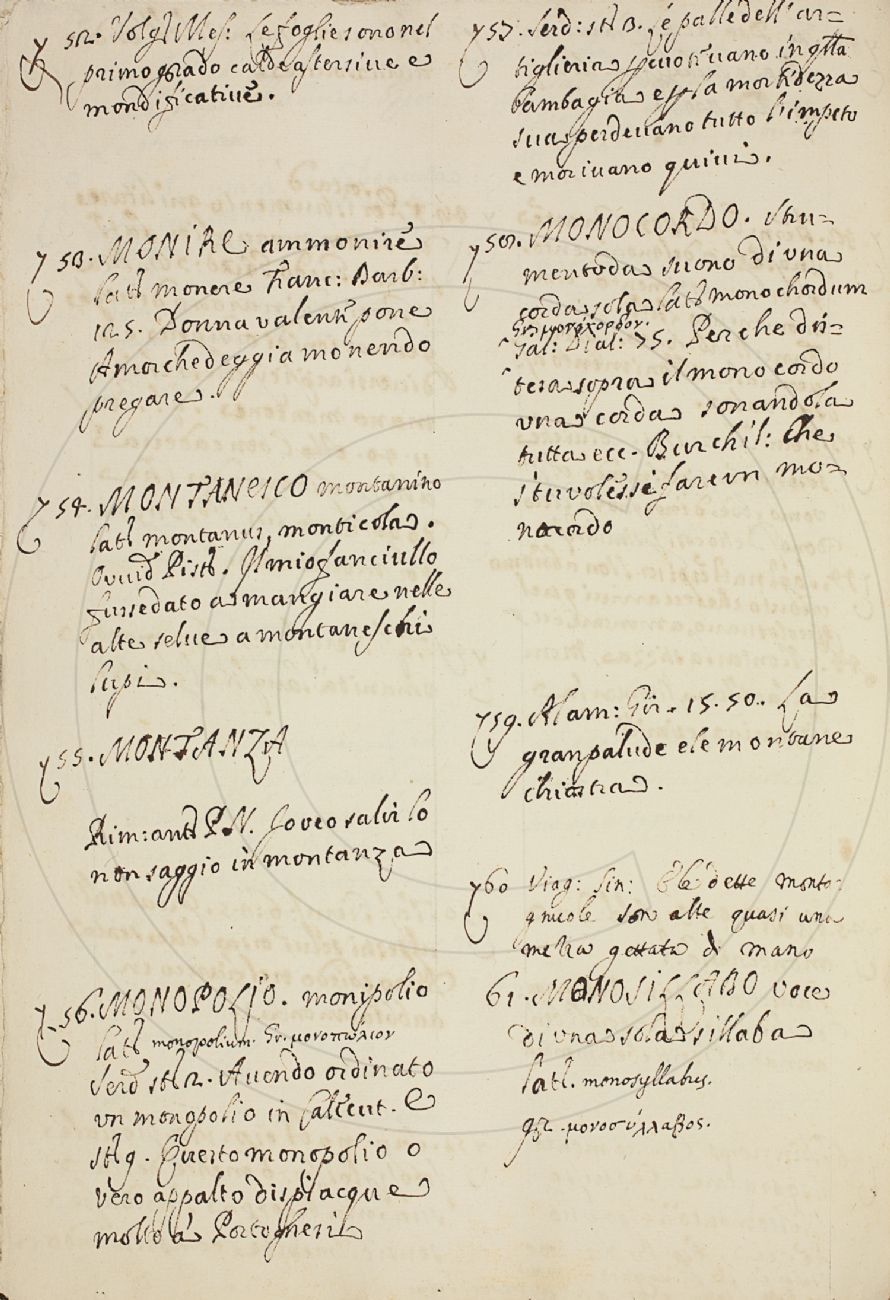 52. Volg. Mes: Le foglie sono nel
primo grado calde astersive e
mondificative.
53. MONIRE ammonire
lat. monere Franc: Barb:
125. Donna valent. pone
Amor chedeggia monendo
pregare.
54. MONTANESCO montanino
lat. montanus, monticola.
Ovvid Pist. Il mio fanciullo
fusse dato a mangiare nelle
alte selve a montaneschi
lupi.
55. MONTANZA
Rim: ant. P.N. Io veo salir lo
non saggio in montanza
56. MONOPOLIO. monipolio
lat. monopolium. Gr. μονοπώλιον
Serd. st. 2. Avendo ordinato
un monopolio in Calecut. E
st. 9. Questo monopolio o
vero appalto dispiacque
molto a' Portoghesi
57. Serd: st. 13. Le palle dell' ar-
tiglieria in qtta
bambagia e la morbidezza
sua perdevano tutto l'impeto
e morivano quivi.
58. MONOCORDO. stru-
mento da suono di una
corda sola lat. monochordum
Gr. μονόχορδον.
Gal: Dial: 75. Perche di-
tesa sopra il monocordo
una corda sonandola
tutta ecc. Burchil: Che
s'tu volessi fare un mo-
nocordo
59. Alam: Gir. 15. 50. La
gran palude e le montane
chiostra.
60 Viag: Sin: E le dette monta-
gnuole son alte quasi una
gettata di mano
61. MONOSILLABO voce
di una sola sillaba
lat. monosyllabus.
gr. μονοσύλλαβος.